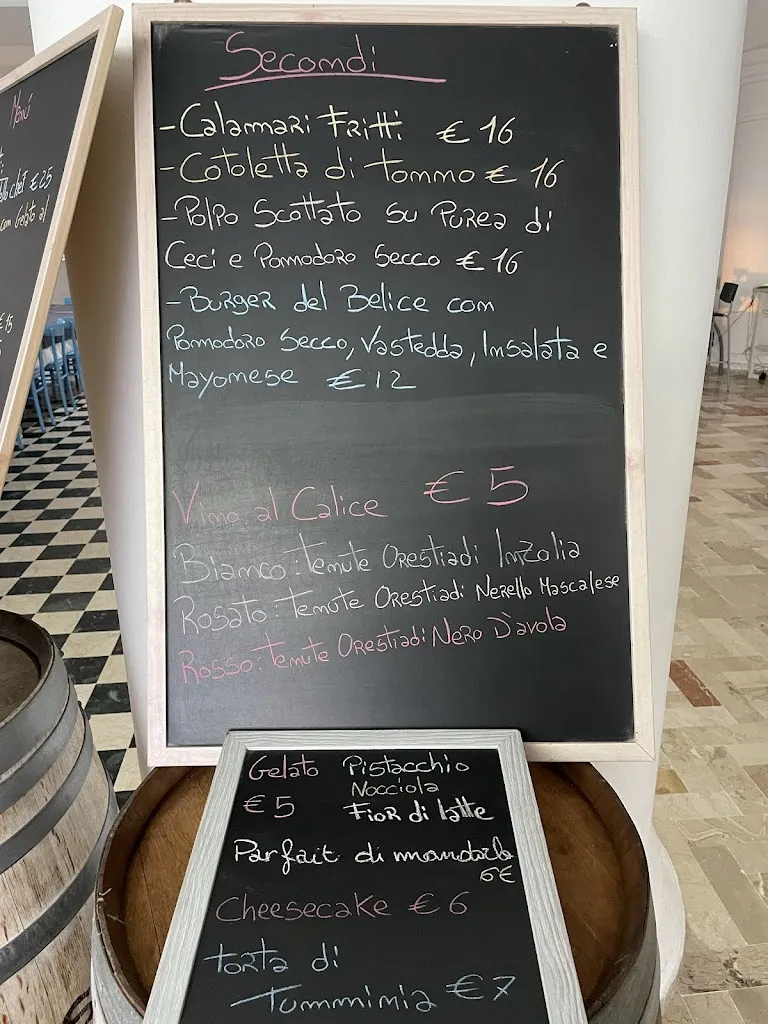 Menú
chef €25
con Gelato al
€15
Secondi
-Calamari Fritti €16
-Cotoletta di Tonno €16
-Polpo Scottato su Purea di
Ceci e Pomodoro Secco €16
-Burger del Belice con
Pomodoro Secco, Vastedda, Insalata e
Mayonese €12
Vino al Calice €5
Bianco: Tenute Orestiadi Inzolia
Rosato: Tenute Orestiadi Nerello Mascalese
Rosso: Tenute Orestiadi Nero D'avola
Gelato Pistacchio
Nocciola
€5 Fior di latte
Parfait di mandorle
6€
Cheesecake €6
Torta di
Tummminia €7